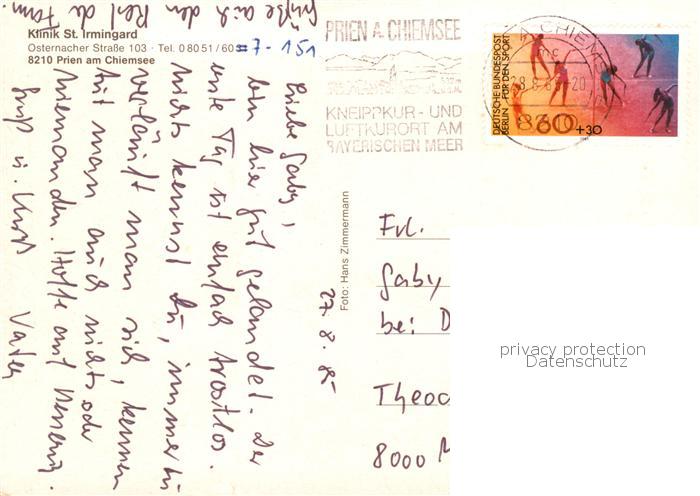 Grüße auch den Rest der Fam.
Klinik St. Irmingard
Osternacher Straße 103 · Tel. 0 80 51 / 60 =7-151
8210 Prien am Chiemsee
Liebe Gaby,
bin hier gut gelandet. Der
erste Tag ist einfach trostlos.
Nichts kennst Du, immer
verläuft man sich, kennen
tut man auch nichts oder
niemanden. Hoffe auf Besserung.
Gruß u. Kuß Vater
27.8.85
Foto: Hans Zimmermann
PRIEN A. CHIEMSEE
KNEIPPKUR- UND
LUFTKURORT AM
BAYERISCHEN MEER
CHIEMS
8210
DEUTSCHE BUNDESPOST
BERLIN FÜR DEN SPORT
60+30
Frl.
Gaby
bei: D
Theod
8000 M
privacy protection
Datenschutz